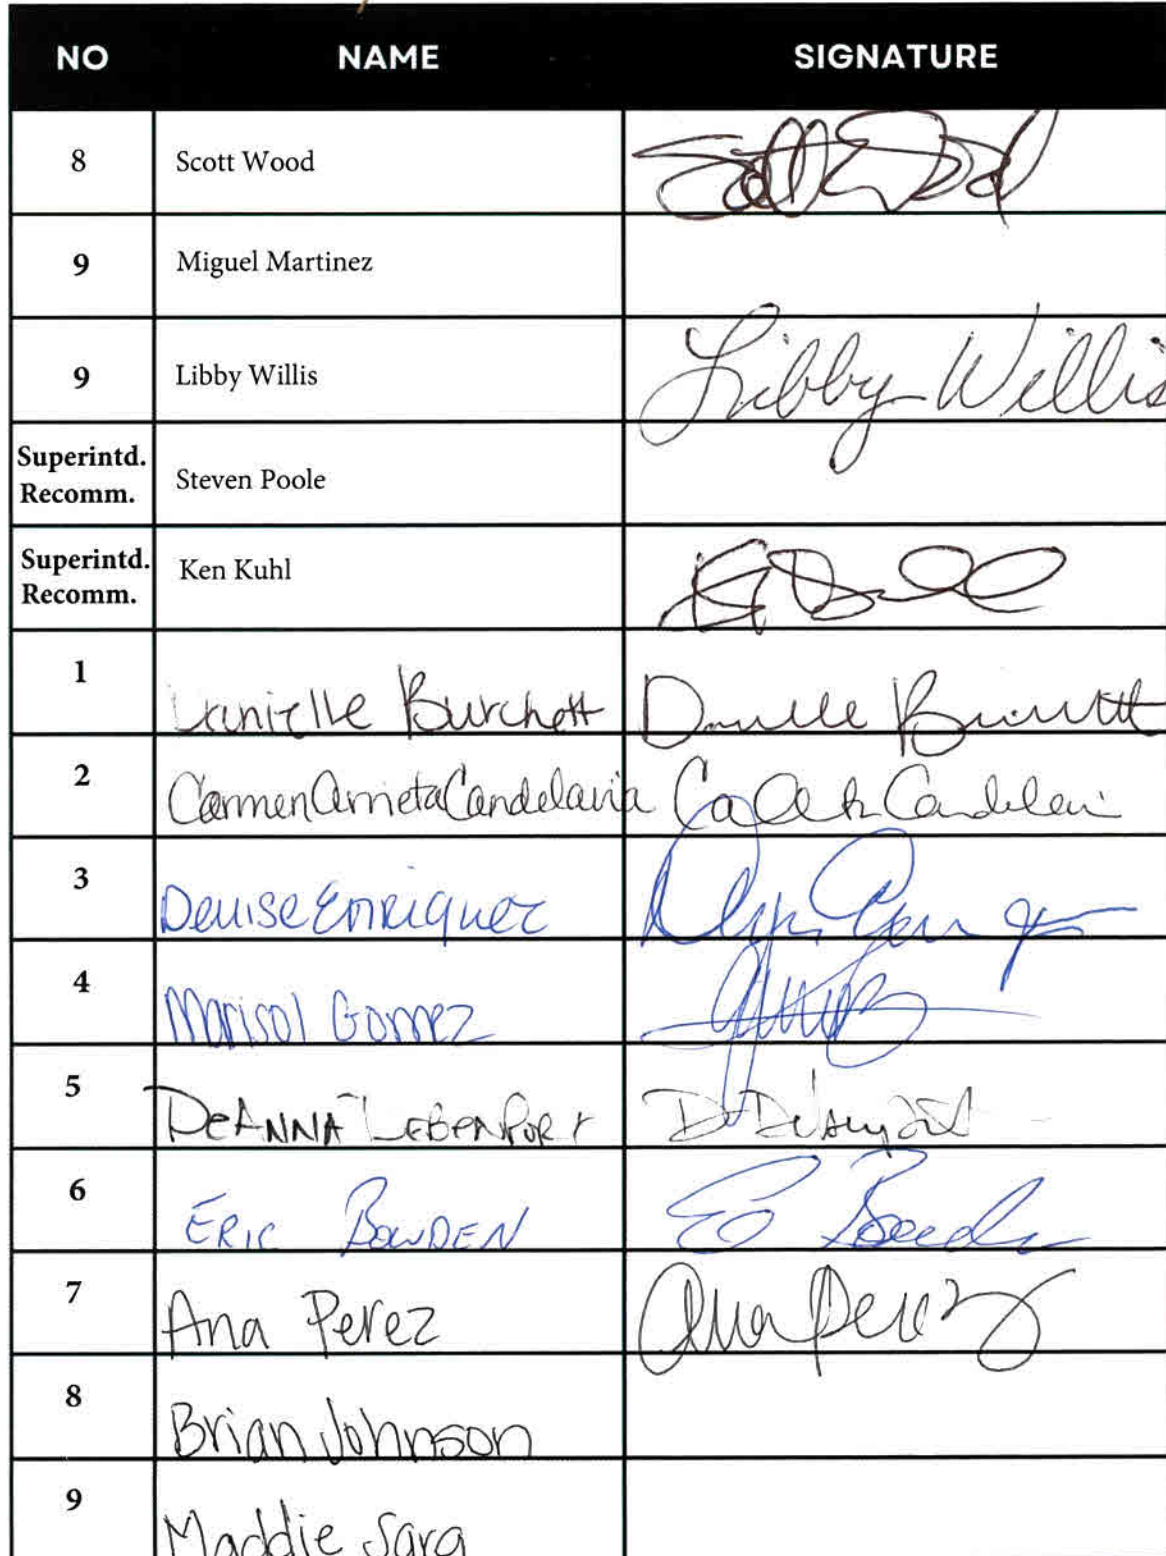 NO NAME SIGNATURE
8 Scott Wood Scott Wood
9 Miguel Martinez
9 Libby Willis Libby Willis
Superintd.
Recomm. Steven Poole
Superintd.
Recomm. Ken Kuhl
1 Danielle Burchett
2 Carmen Arrieta Candelaria
3 Denise Enriquez
4 Marisol Gomez
5 DeANNA
6 ERIC BOWDEN
7 Ana Perez Ana Perez
8 Brian Johnson
9 Maddie Sara